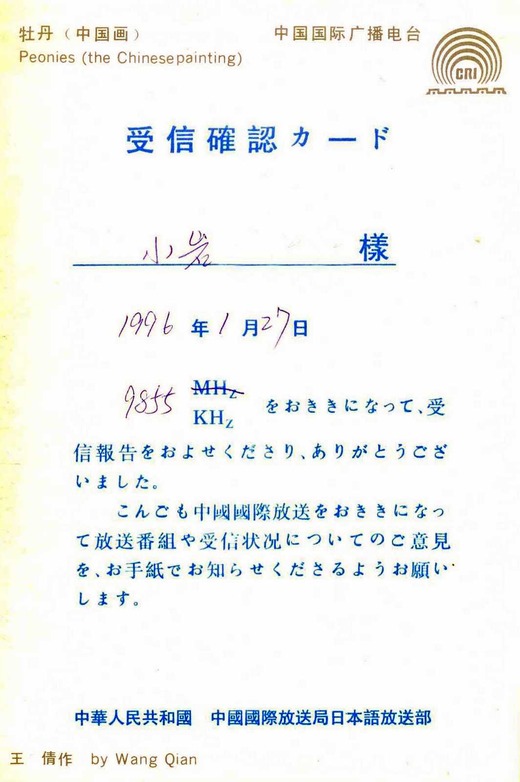 牡丹（中国画） 中国国际广播电台
Peonies (the Chinesepainting)
CRI
受信確認カード
小岩 様
1996年1月27日
9855 MHz
KHz をおききになって、受
信報告をおよせくださり、ありがとうござ
いました。
こんごも中國國際放送をおききになっ
て放送番組や受信状况についてのご意見
を、お手紙でお知らせくださるようお願い
します。
中華人民共和國 中國國際放送局日本語放送部
王 倩作 by Wang Qian